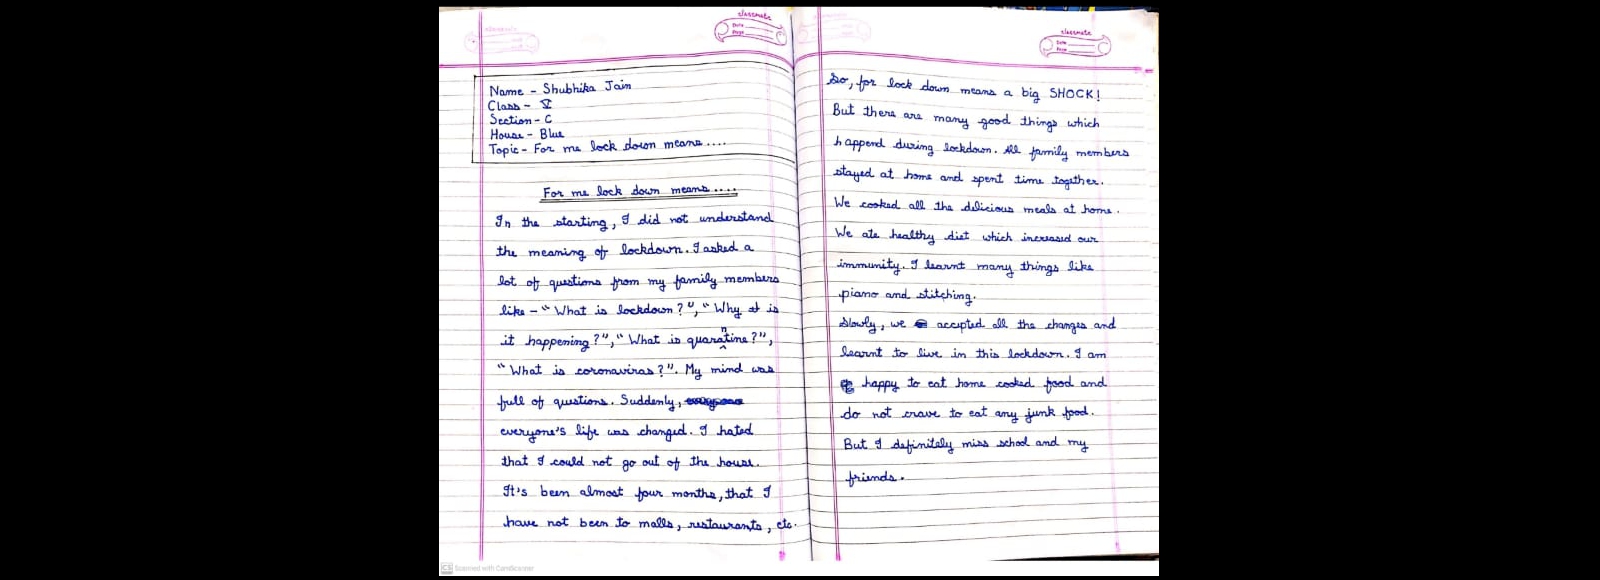 classmate
Date
Page
Name - Shubhika Jain
Class - V
Section - C
House - Blue
Topic - For me lock down means ....
For me lock down means ....
In the starting, I did not understand
the meaning of lockdown. I asked a
lot of questions from my family members
like - "What is lockdown?", "Why is
it happening?", "What is quarantine?",
"What is coronaviras?". My mind was
full of questions. Suddenly,
everyone's life was changed. I hated
that I could not go out of the house.
It's been almost four months, that I
have not been to malls, restaurants, etc.
classmate
Date
Page
So, for lock down means a big SHOCK!
But there are many good things which
happend during lockdown. All family members
stayed at home and spent time together.
We cooked all the delicious meals at home.
We ate healthy diet which increased our
immunity. I learnt many things like
piano and stitching.
Slowly, we accipted all the changes and
learnt to live in this lockdown. I am
happy to eat home cooked food and
do not crave to eat any junk food.
But I definitely miss school and my
friends.
CS Scanned with CamScanner